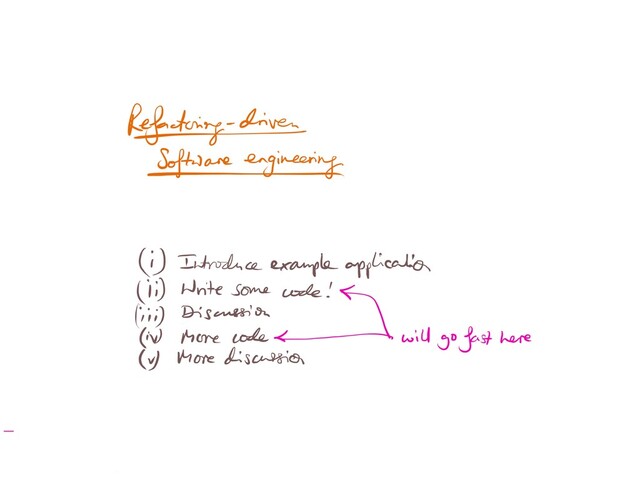 Refactoring-driven
Software engineering
(i) Introduce example application
(ii) Write some code!
(iii) Discussion
(iv) More code
will go fast here
(v) More discussion